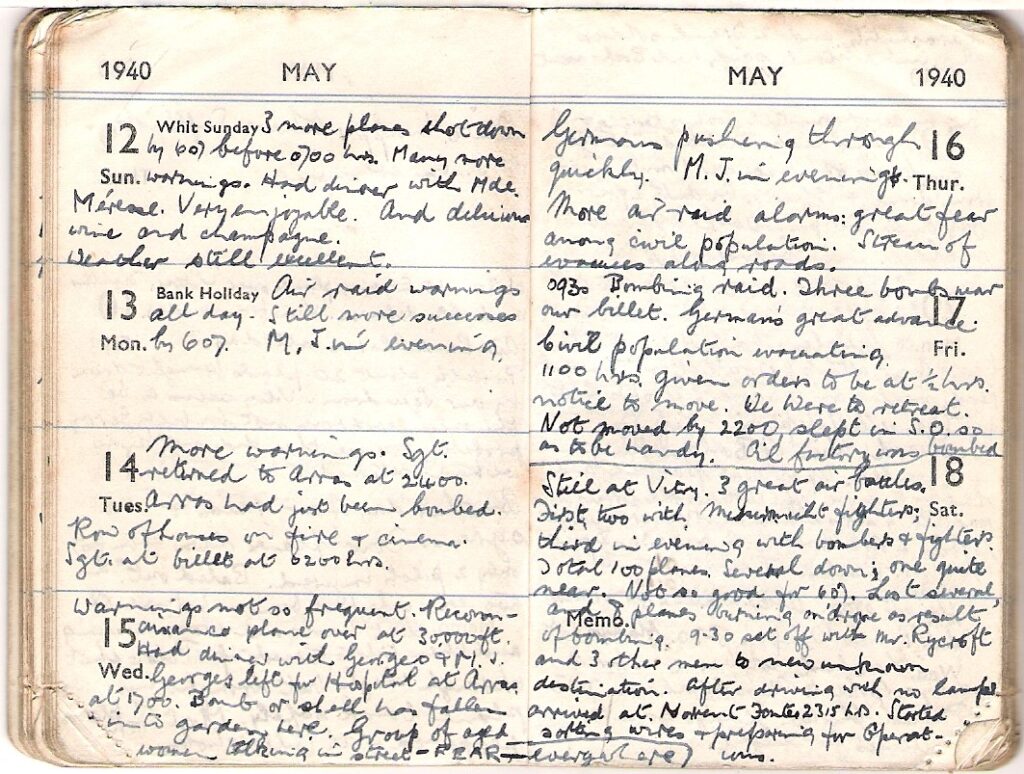 1940 MAY
12 Whit Sunday 3 more planes shot down
by 607 before 0700 hrs. Many more
Sun. warnings. Had dinner with Mde.
Méresse. Very enjoyable. And delicious
wine and champagne.
Weather still excellent.
13 Bank Holiday Air raid warnings
all day. Still more successes
Mon. by 607. M. J. in evening.
14 More warnings. Sgt.
returned to Arras at 2400.
Tues. Arras had just been bombed.
Row of houses on fire & cinema.
Sgt. at billet at 0200 hrs.
Warnings not so frequent. Reconn-
15 aisance plane over at 30000 ft.
Had dinner with Georges & M. J.
Wed. Georges left for Hospital at Arras
at 1700. Bomb or shell has fallen
into garden here. Group of aged
women talking in street - FEAR = everywhere
MAY 1940
Germans pushing through 16
quickly. M. J. in evening. Thur.
More air raid alarms: great fear
among civil population. Stream of
evacuees along roads.
0930 Bombing raid. Three bombs near
our billet. German's great advance. 17
Civil population evacuating. Fri.
1100 hrs. given orders to be at ½ hrs.
notice to move. We were to retreat.
Not moved by 2200, slept in S.O. so
as to be handy. Oil factory was bombed
18
Still at Vitry. 3 great air battles.
First two with Messerschmitt fighters; Sat.
third in evening with bombers & fighters.
Total 100 planes. Several down; one quite
near. Not so good for 607. Lost several,
and 8 planes burning on 'drome as result
Memo.
of bombing. 9-30 set off with Mr. Rycroft
and 3 other men to new unknown
destination. After driving with no lamps
arrived at Norrent Fontes 2315 hrs. Started
sorting wires & preparing for Operat-
ions.